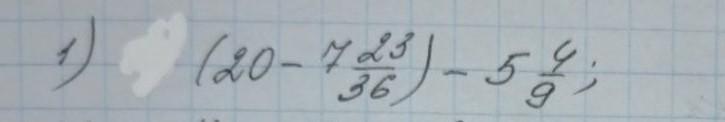 1) (20 - 7 23/36) - 5 4/9;